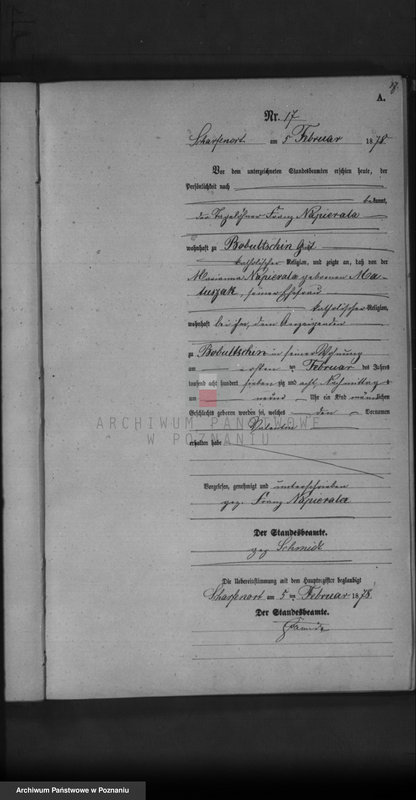 A.
Nr. 17
Scharfenort am 5 Februar 1878
Vor dem unterzeichneten Standesbeamten erschien heute, der
Persönlichkeit nach
bekannt,
der Tagelöhner Franz Napierala
wohnhaft zu Bobultschin Gut
katholischer Religion, und zeigte an, daß von der
Marianna Napierala geborenen Ma-
tuszak, seiner Ehefrau
katholischer Religion,
wohnhaft bei ihm, dem Anzeigenden
zu Bobultschin in seiner Wohnung
am ersten ten Februar des Jahres
tausend acht hundert siebenzig und acht Nachmittags
um neun Uhr ein Kind männlichen
Geschlechts geboren worden sei, welches den Vornamen
Valentin
erhalten habe
Vorgelesen, genehmigt und unterschrieben
gez. Franz Napierala
Der Standesbeamte.
gez Schmidt
Die Uebereinstimmung mit dem Hauptregister beglaubigt
Scharfenort am 5 ten Februar 1878.
Der Standesbeamte.
Schmidt
ARCHIWUM PAŃSTWOWE
W POZNANIU
Archiwum Państwowe w Poznaniu